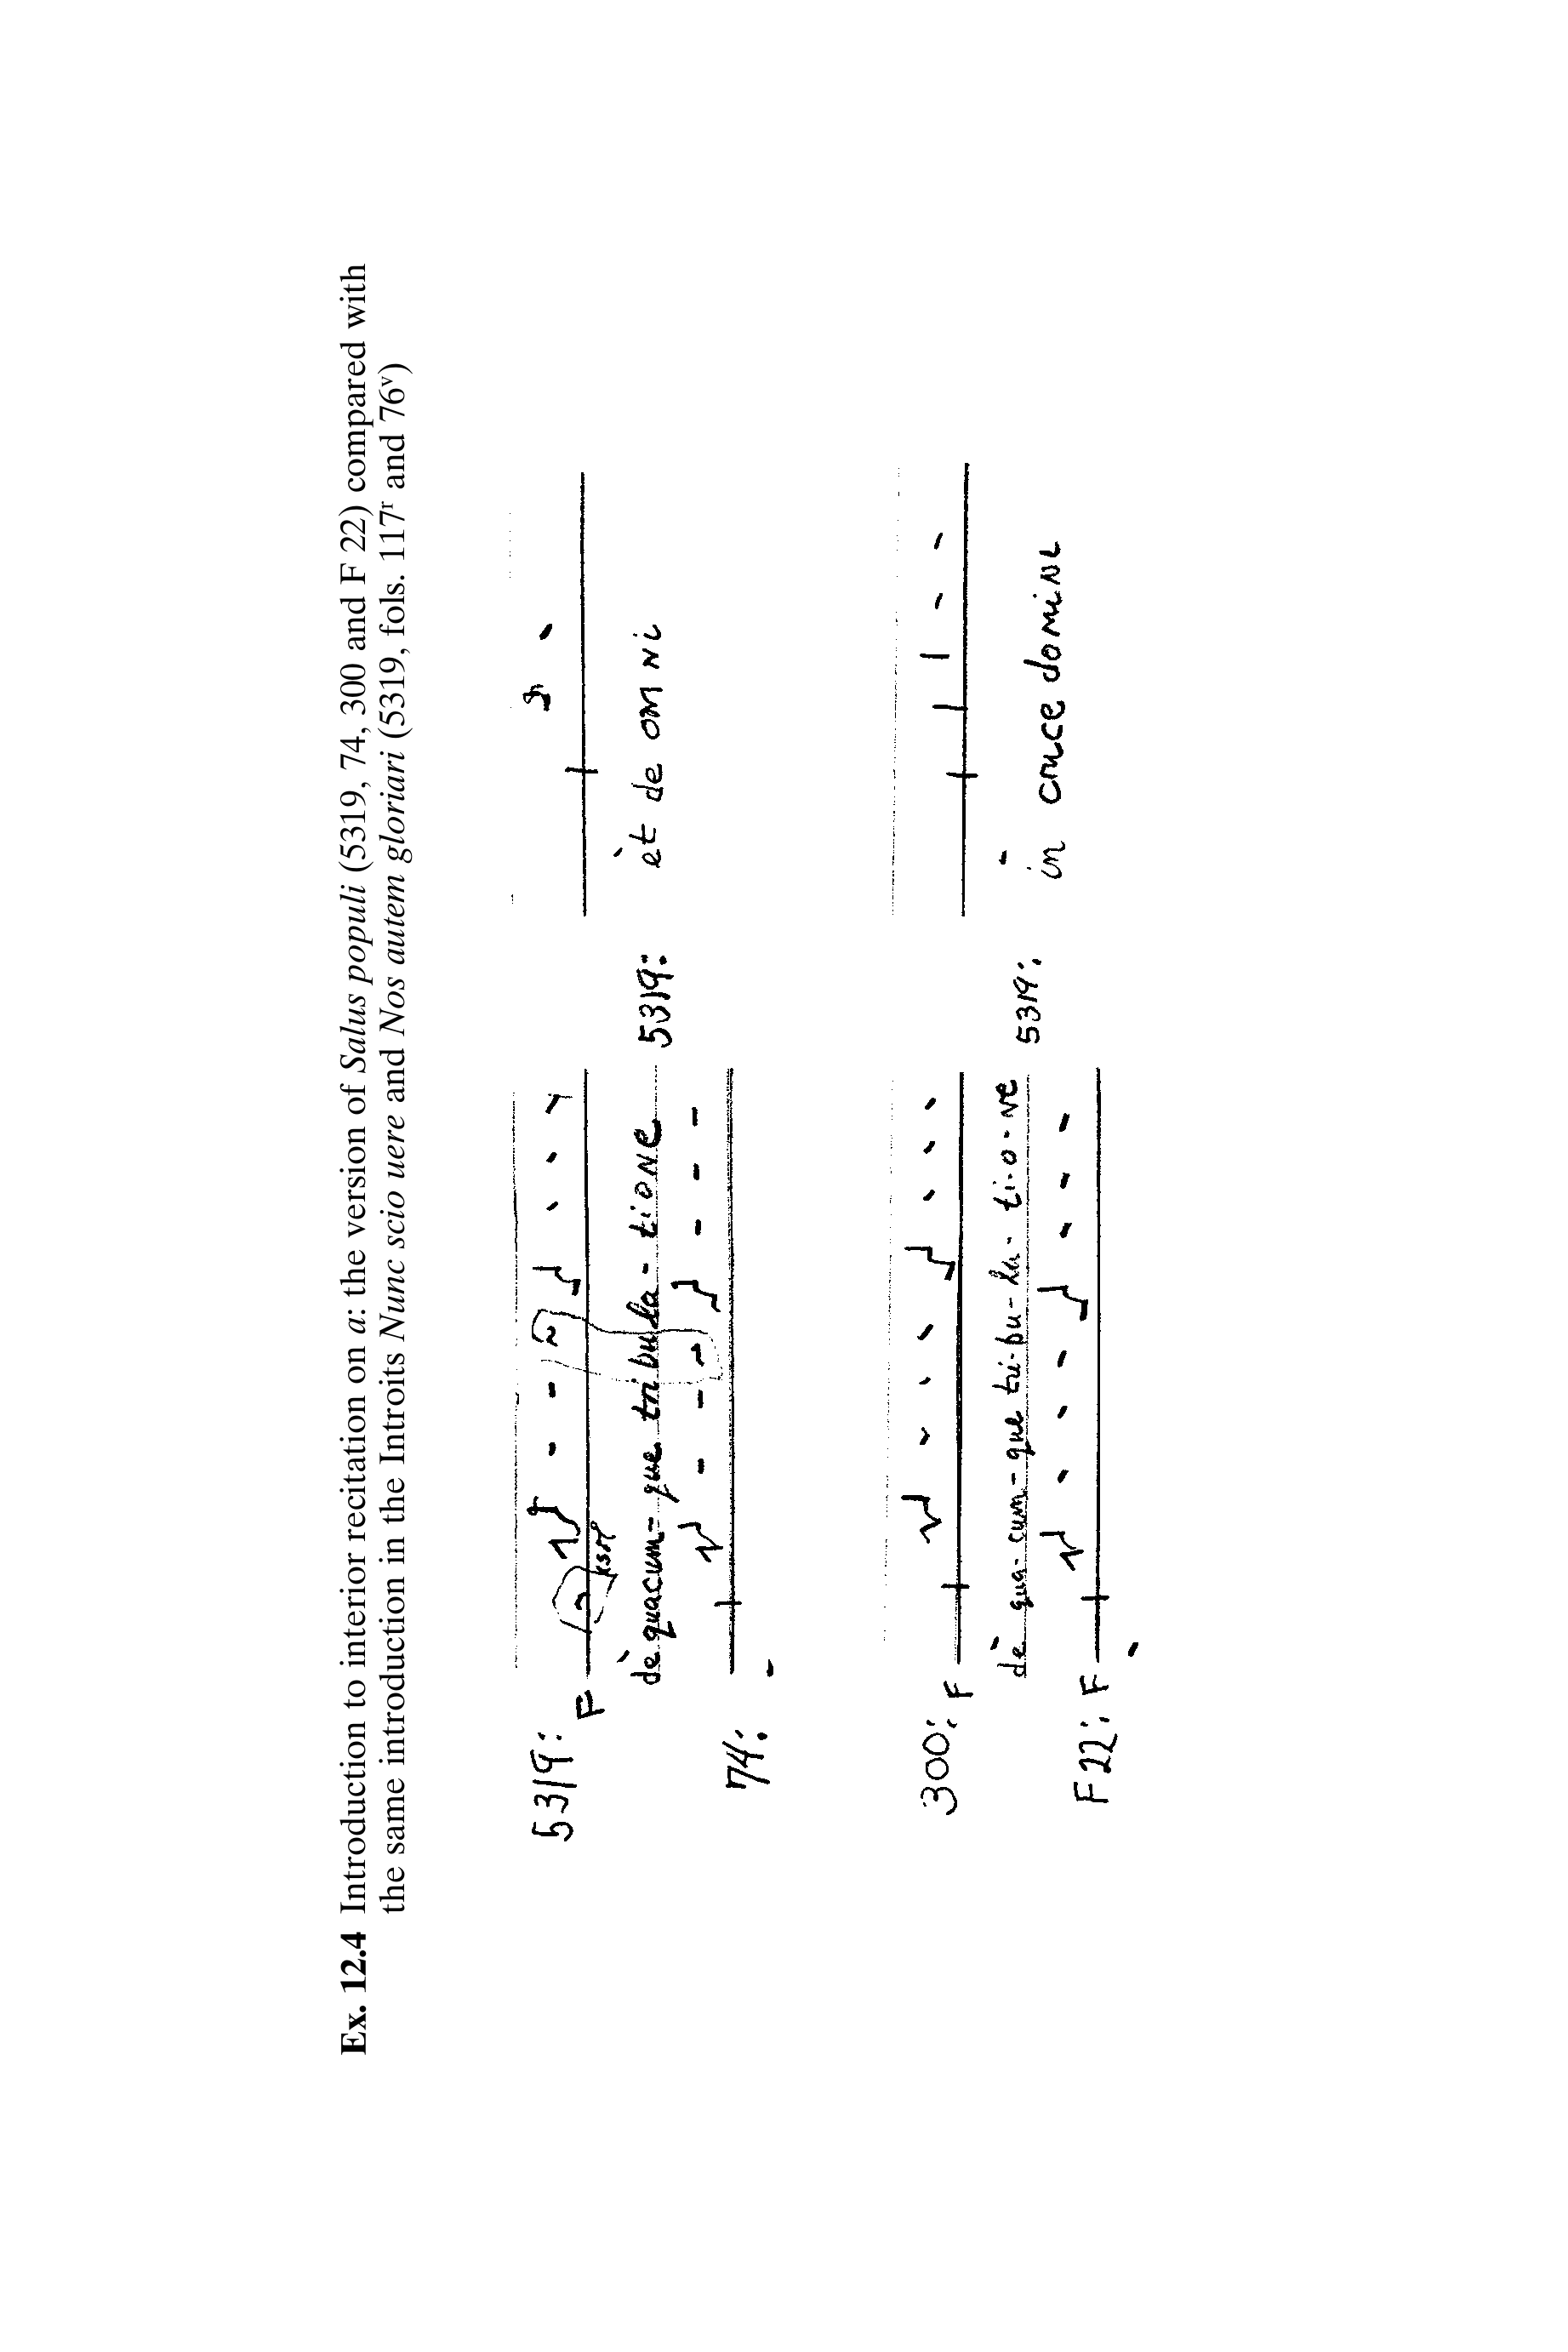 Ex. 12.4 Introduction to interior recitation on a: the version of Salus populi (5319, 74, 300 and F 22) compared with
the same introduction in the Introits Nunc scio uere and Nos autem gloriari (5319, fols. 117r and 76v)
5319:
F
de quacum- que tribula- tione
5319:
et de omni
74:
300:
F
de qua- cum- que tri- bu- la- ti- o- ne
5319:
in cruce domini
F 22:
F